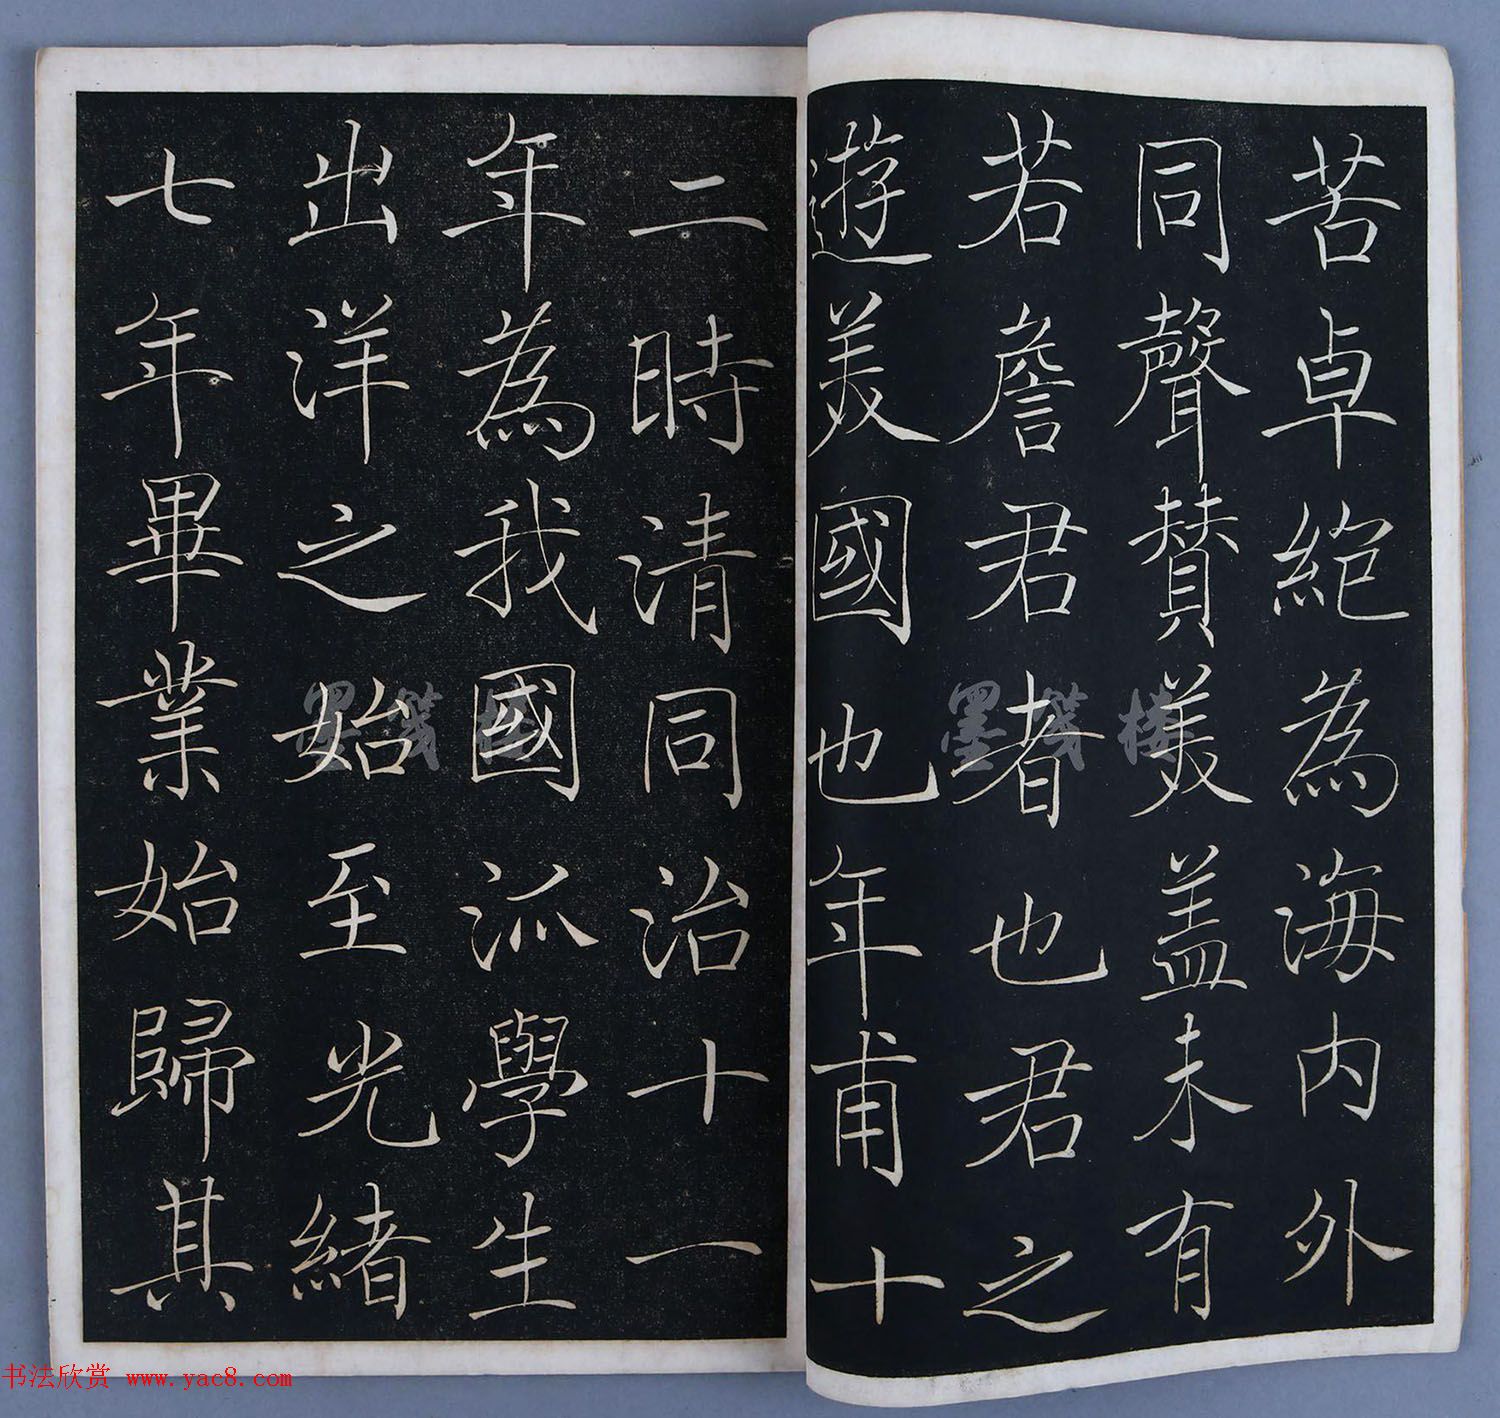 苦卓絶為海内外
同聲賛美盖未有
若詹君者也君之
遊美國也年甫十
二時清同治十一
年為我國派學生
出洋之始至光緒
七年畢業始歸其
墨箋樓
墨箋樓
书法欣赏 www.yac8.com